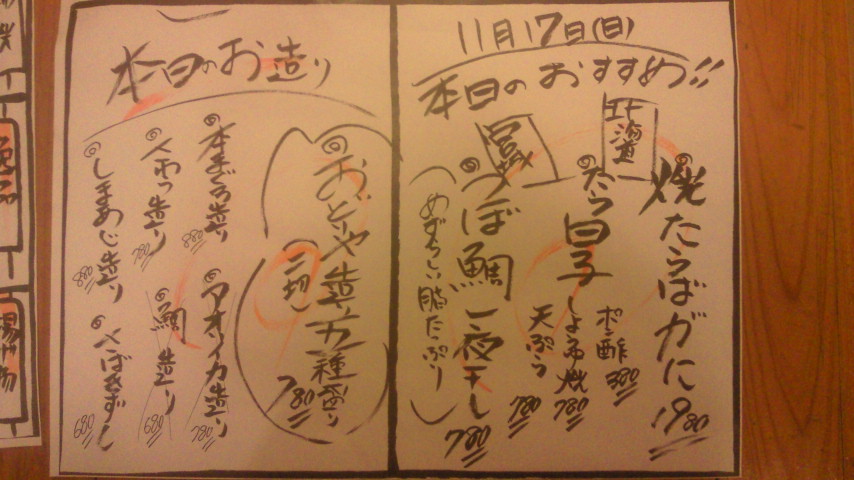 11月17日(日)
本日のおすすめ!!
北海道
焼たらばがに 1980
たら白子
ポン酢 380
しょうゆ焼 780
天ぷら 780
宮城
つぼ鯛一夜干し 780
(めずらしい脂たっぷり)
本日のお造り
おどりや造り五種盛り
(二切) 780
本まぐろ造り 880
アオイカ造り 780
へわつ造り 780
鯛造り 680
しまあじ造り 880
さばきずし 680